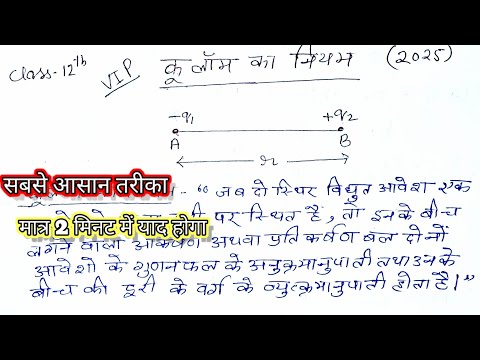 Class-12th VIP कूलॉम का नियम (2025)
-q1 +q2
A B
r
सबसे आसान तरीका - “जब दो स्थिर विद्युत आवेश एक
मात्र 2 मिनट में याद होगा पर स्थित हैं, तो इनके बीच
लगने वाला आकर्षण अथवा प्रतिकर्षण बल दोनों
आवेशो के गुणनफल के अनुक्रमानुपाती तथा उनके
बीच की दूरी के वर्ग के व्युत्क्रमानुपाती होता है।”